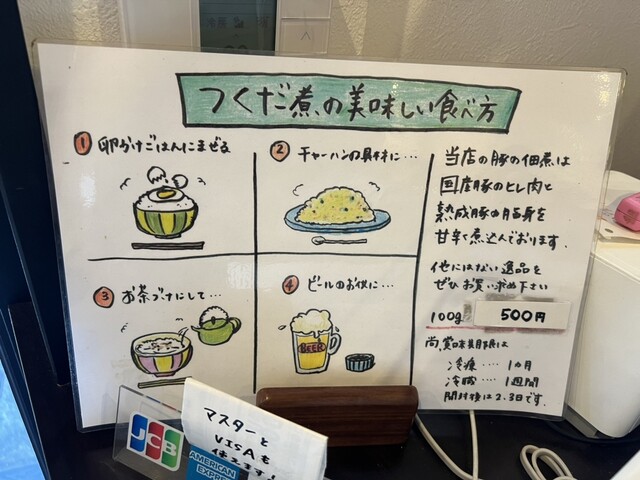 つくだ煮の美味しい食べ方
① 卵かけごはんにまぜる
② チャーハンの具材に…
③ お茶づけにして…
④ ビールのお供に…
BEER
当店の豚の佃煮は
国産豚のヒレ肉と
熟成豚の脂身を
甘辛く煮込んでおります.
他にはない逸品を
ぜひお買い求め下さい
100g 500円
尚、賞味期限は
冷凍‥‥1カ月
冷蔵‥‥1週間
開封後は2.3日です.
JCB
マスターと
VISAも
使えます!
AMERICAN
EXPRESS